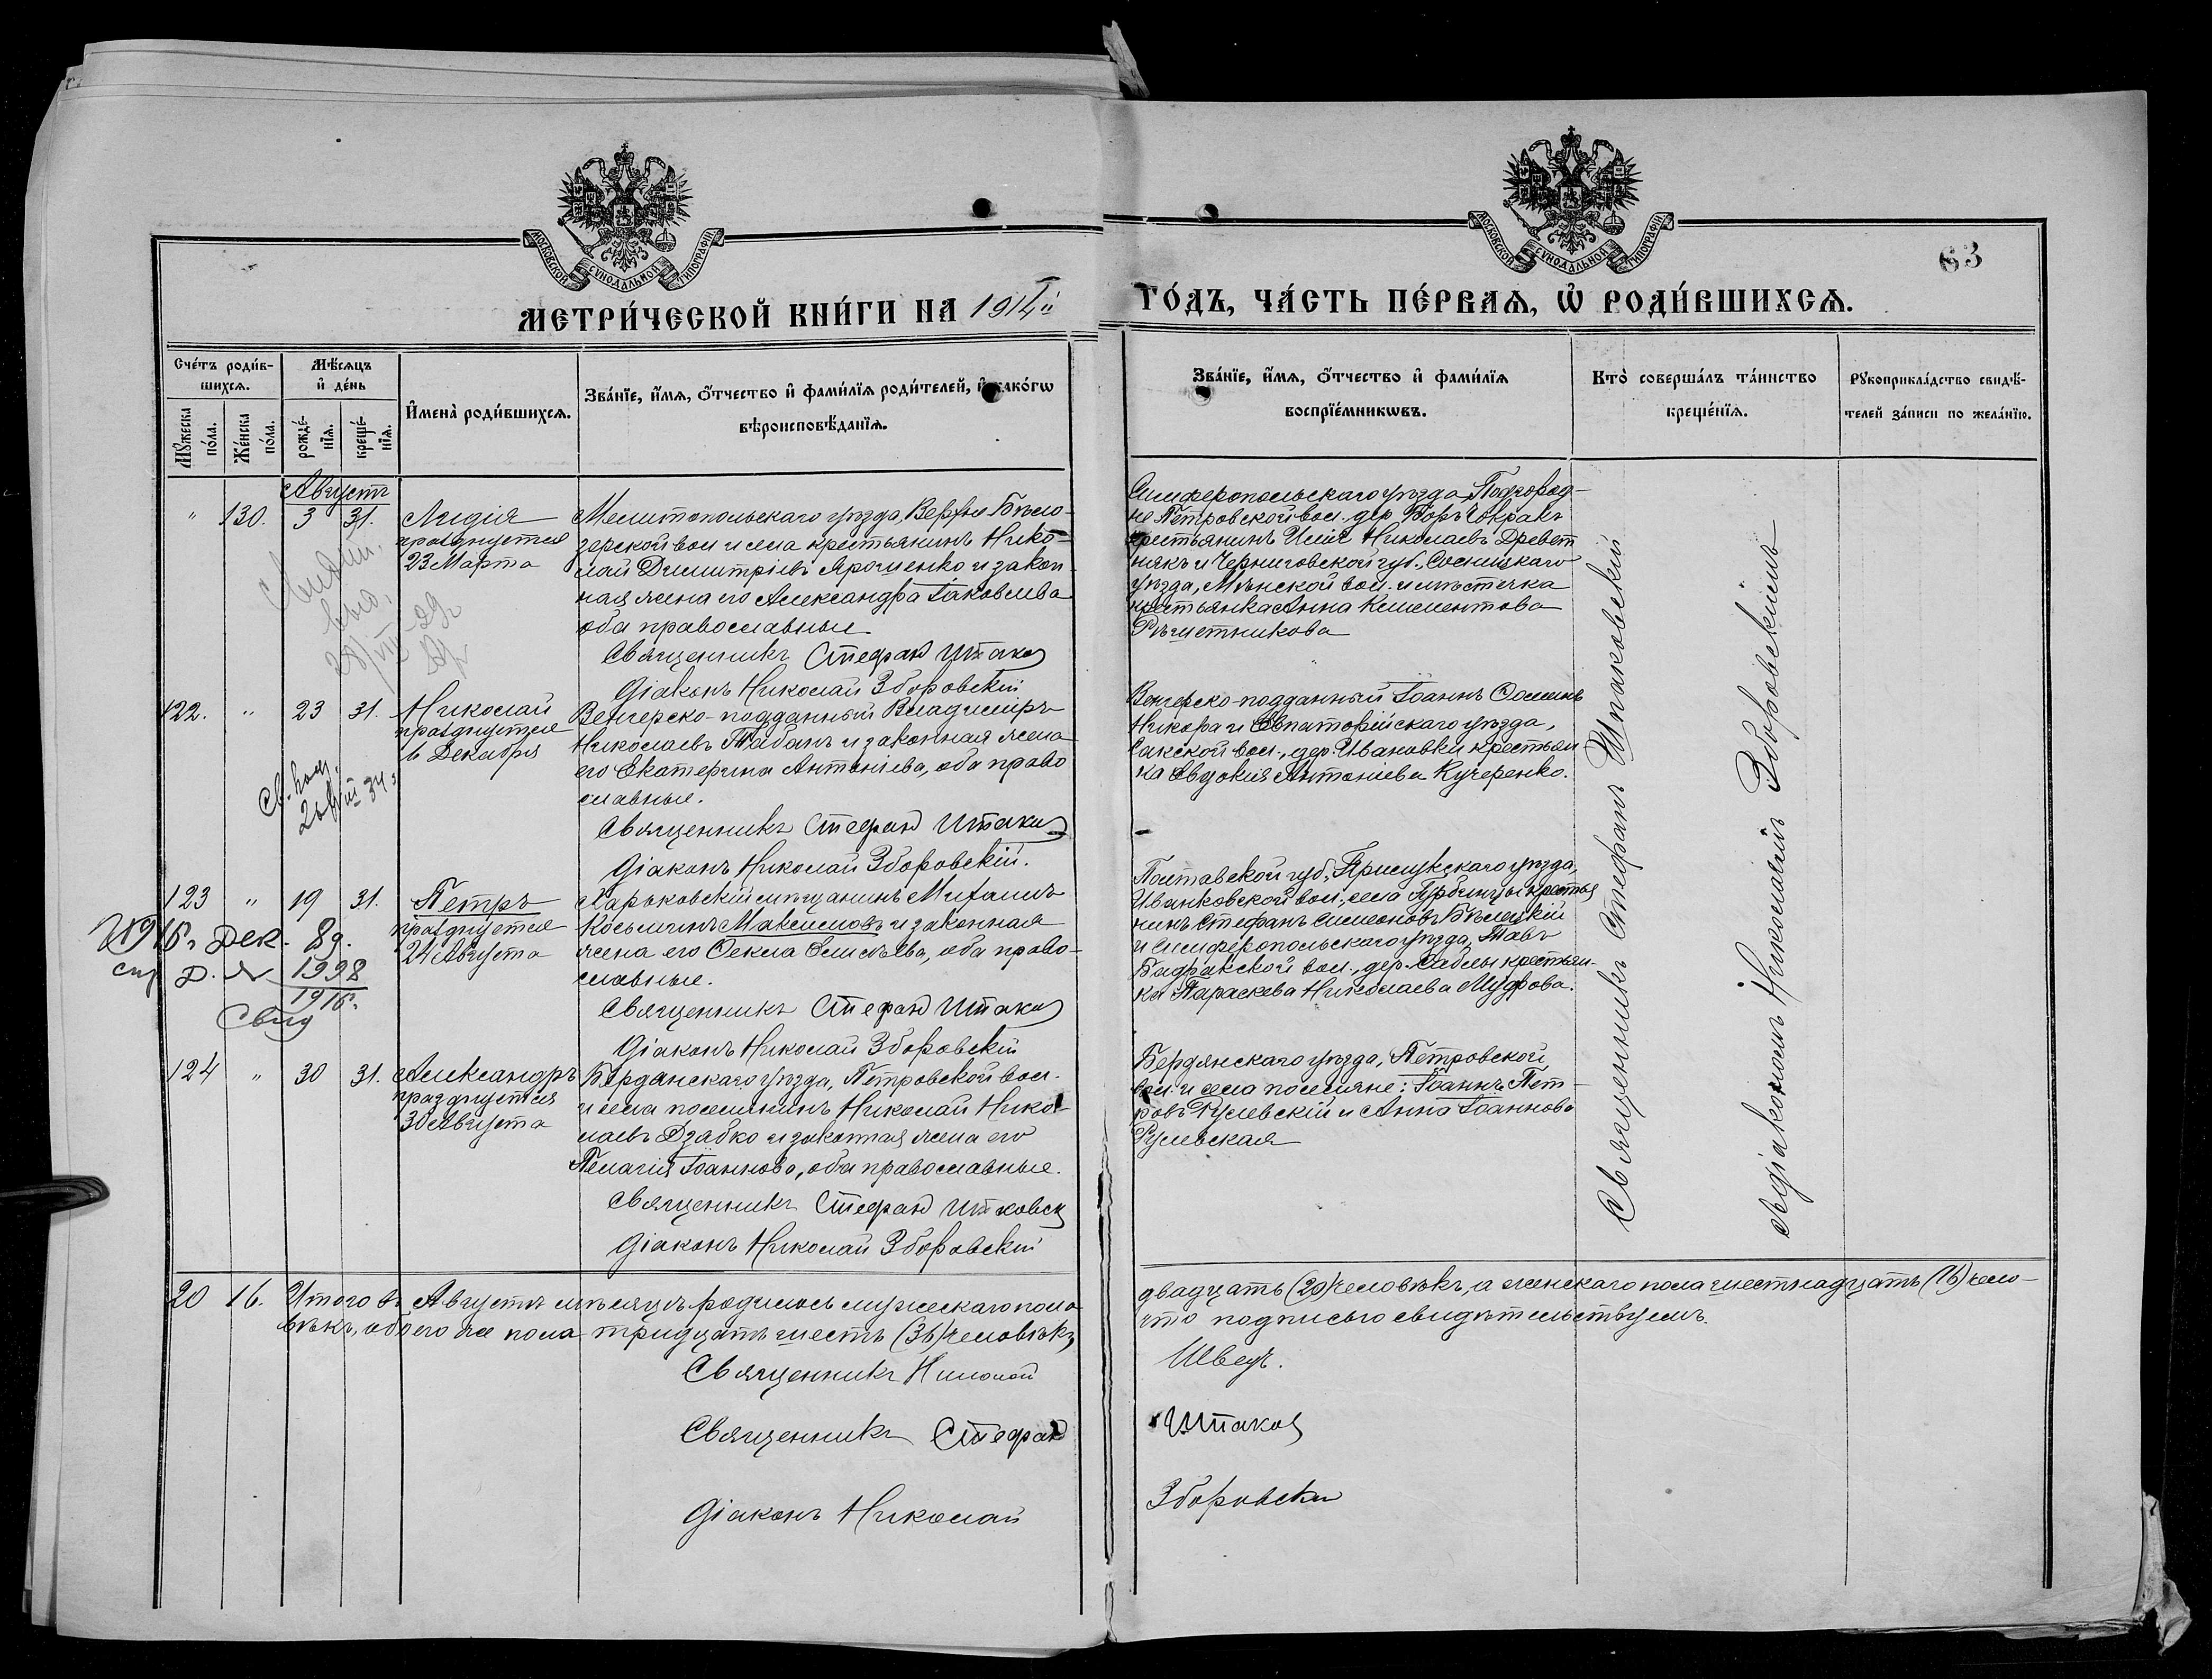 МОСКОВСКОЙ СУНОДАЛЬНОЙ ТИПОГРАФІИ
МОСКОВСКОЙ СУНОДАЛЬНОЙ ТИПОГРАФІИ
63
МЕТРИ́ЧЕСКОЙ КНИ́ГИ НА 1914й
ГО́ДЪ, ЧА́СТЬ ПЕ́РВАѦ, Ѡ҆ РОДИ́ВШИХСѦ.
Сче́тъ роди́в-
шихсѧ.
Мѣ́сѧцъ
и҆ де́нь
Мꙋ́жеска
по́ла.
Же́нска
по́ла.
рожде́-
нїѧ.
креще́-
нїѧ.
И҆мена̀ роди́вшихсѧ.
Зва́нїе, и҆́мѧ, ѻ҆́тчество и҆ фами́лїѧ роди́телей, и҆ како́гѡ
вѣроисповѣ́данїѧ.
Зва́нїе, и҆́мѧ, ѻ҆́тчество и҆ фами́лїѧ
воспрїе́мникѡвъ.
Кто̀ соверша́лъ та́инство
креще́нїѧ.
Рꙋкоприкла́дство свидѣ́-
телей за́писи по жела́нїю.
Августъ
" 130. 3 31. Лидія
празднуется
23 Марта
Мелитопольскаго уѣзда, Верхне Бѣло-
зерской вол и села крестьянинъ Нико-
лай Димитріевъ Ярошенко и закон-
ная жена его Александра Іаковлева
оба православные
Священникъ Стефан Шпаков
Діаконъ Николай Зборовскій
Симферопольскаго уѣзда, Подгород-
не Петровской вол. дер Боръ Чокракъ
крестьянинъ Илія Николаевъ Древет
някъ и Черниговской губ., Сосницкаго
уѣзда, Мѣнской вол. и мѣстечка
крестьянка Анна Климентова
Рѣшетникова
122. " 23 31. Николай
празднуется
6 Декабря
Венгерско-подданный Владимиръ
Николаевъ Табанъ и законная жена
его Екатерина Антоніева, оба право
славные.
Священникъ Стефан Шпаков
Діаконъ Николай Зборовскій.
Венгерско-подданный Іоаннъ
Никора и Евпаторійскаго уѣзда,
Сакской вол., дер. Ивановки крестьян
ка Евдокія Антоніева Кучеренко.
123 " 19 31. Петръ
празднуется
24 Августа
1916г. Дек. 8д.
1998
1916.
Свид
Харьковскій мѣщанинъ Михаилъ
Косьминъ Максимовъ и законная
жена его Ѳекла Елисѣева, оба право-
славные.
Священникъ Стефан Шпаков
Діаконъ Николай Зборовскій
Полтавской губ., Прилукскаго уѣзда,
Иванковской вол., села крестья
нинъ Стефанъ Симеоновъ Бѣлецкій
и Симферопольскаго уѣзда, Тавъ
Бадракской вол., дер. Саблы крестьян-
ка Параскева Николаева Мудрова.
124 " 30 31. Александръ
празднуется
30 Августа
Бердянскаго уѣзда, Петровской вол.
и села поселянинъ Николай Нико-
лаевъ Дзабко и законная жена его
Пелагія Іоаннова, оба православные.
Священникъ Стефан Шпаковск
Діаконъ Николай Зборовскій
Бердянскаго уѣзда, Петровской
вол. и села поселяне: Іоаннъ Пет-
ровъ Гулевскій и Анна Іоаннова
Гулевская
Священникъ Стефанъ Шпаковскій
съ діакономъ Николаемъ Зборовскимъ
20 16. Итого въ Августѣ мѣсяцѣ родилось мужескаго пола двадцать (20) человѣкъ, а женскаго пола шестнадцать (16) чело-
вѣкъ, обоего же пола тридцать шесть (36) человѣкъ, что подписью свидѣтельствуемъ.
Священникъ Николай Швецъ.
Священникъ Стефан Шпаков
Діаконъ Николай Зборовски